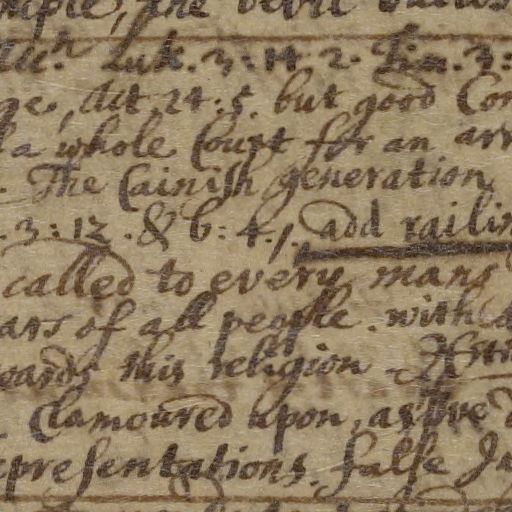 the devil
Luk. 3: 14. 2. Tim. 3:
Act 24: 5. but good Con
a whole Court for an arr
. The Cainish generation
. 3: 12. & 6: 4., add railin
called to every mans
ars of all people. with
eards this religion
Clamoured upon, as
epresentations. false